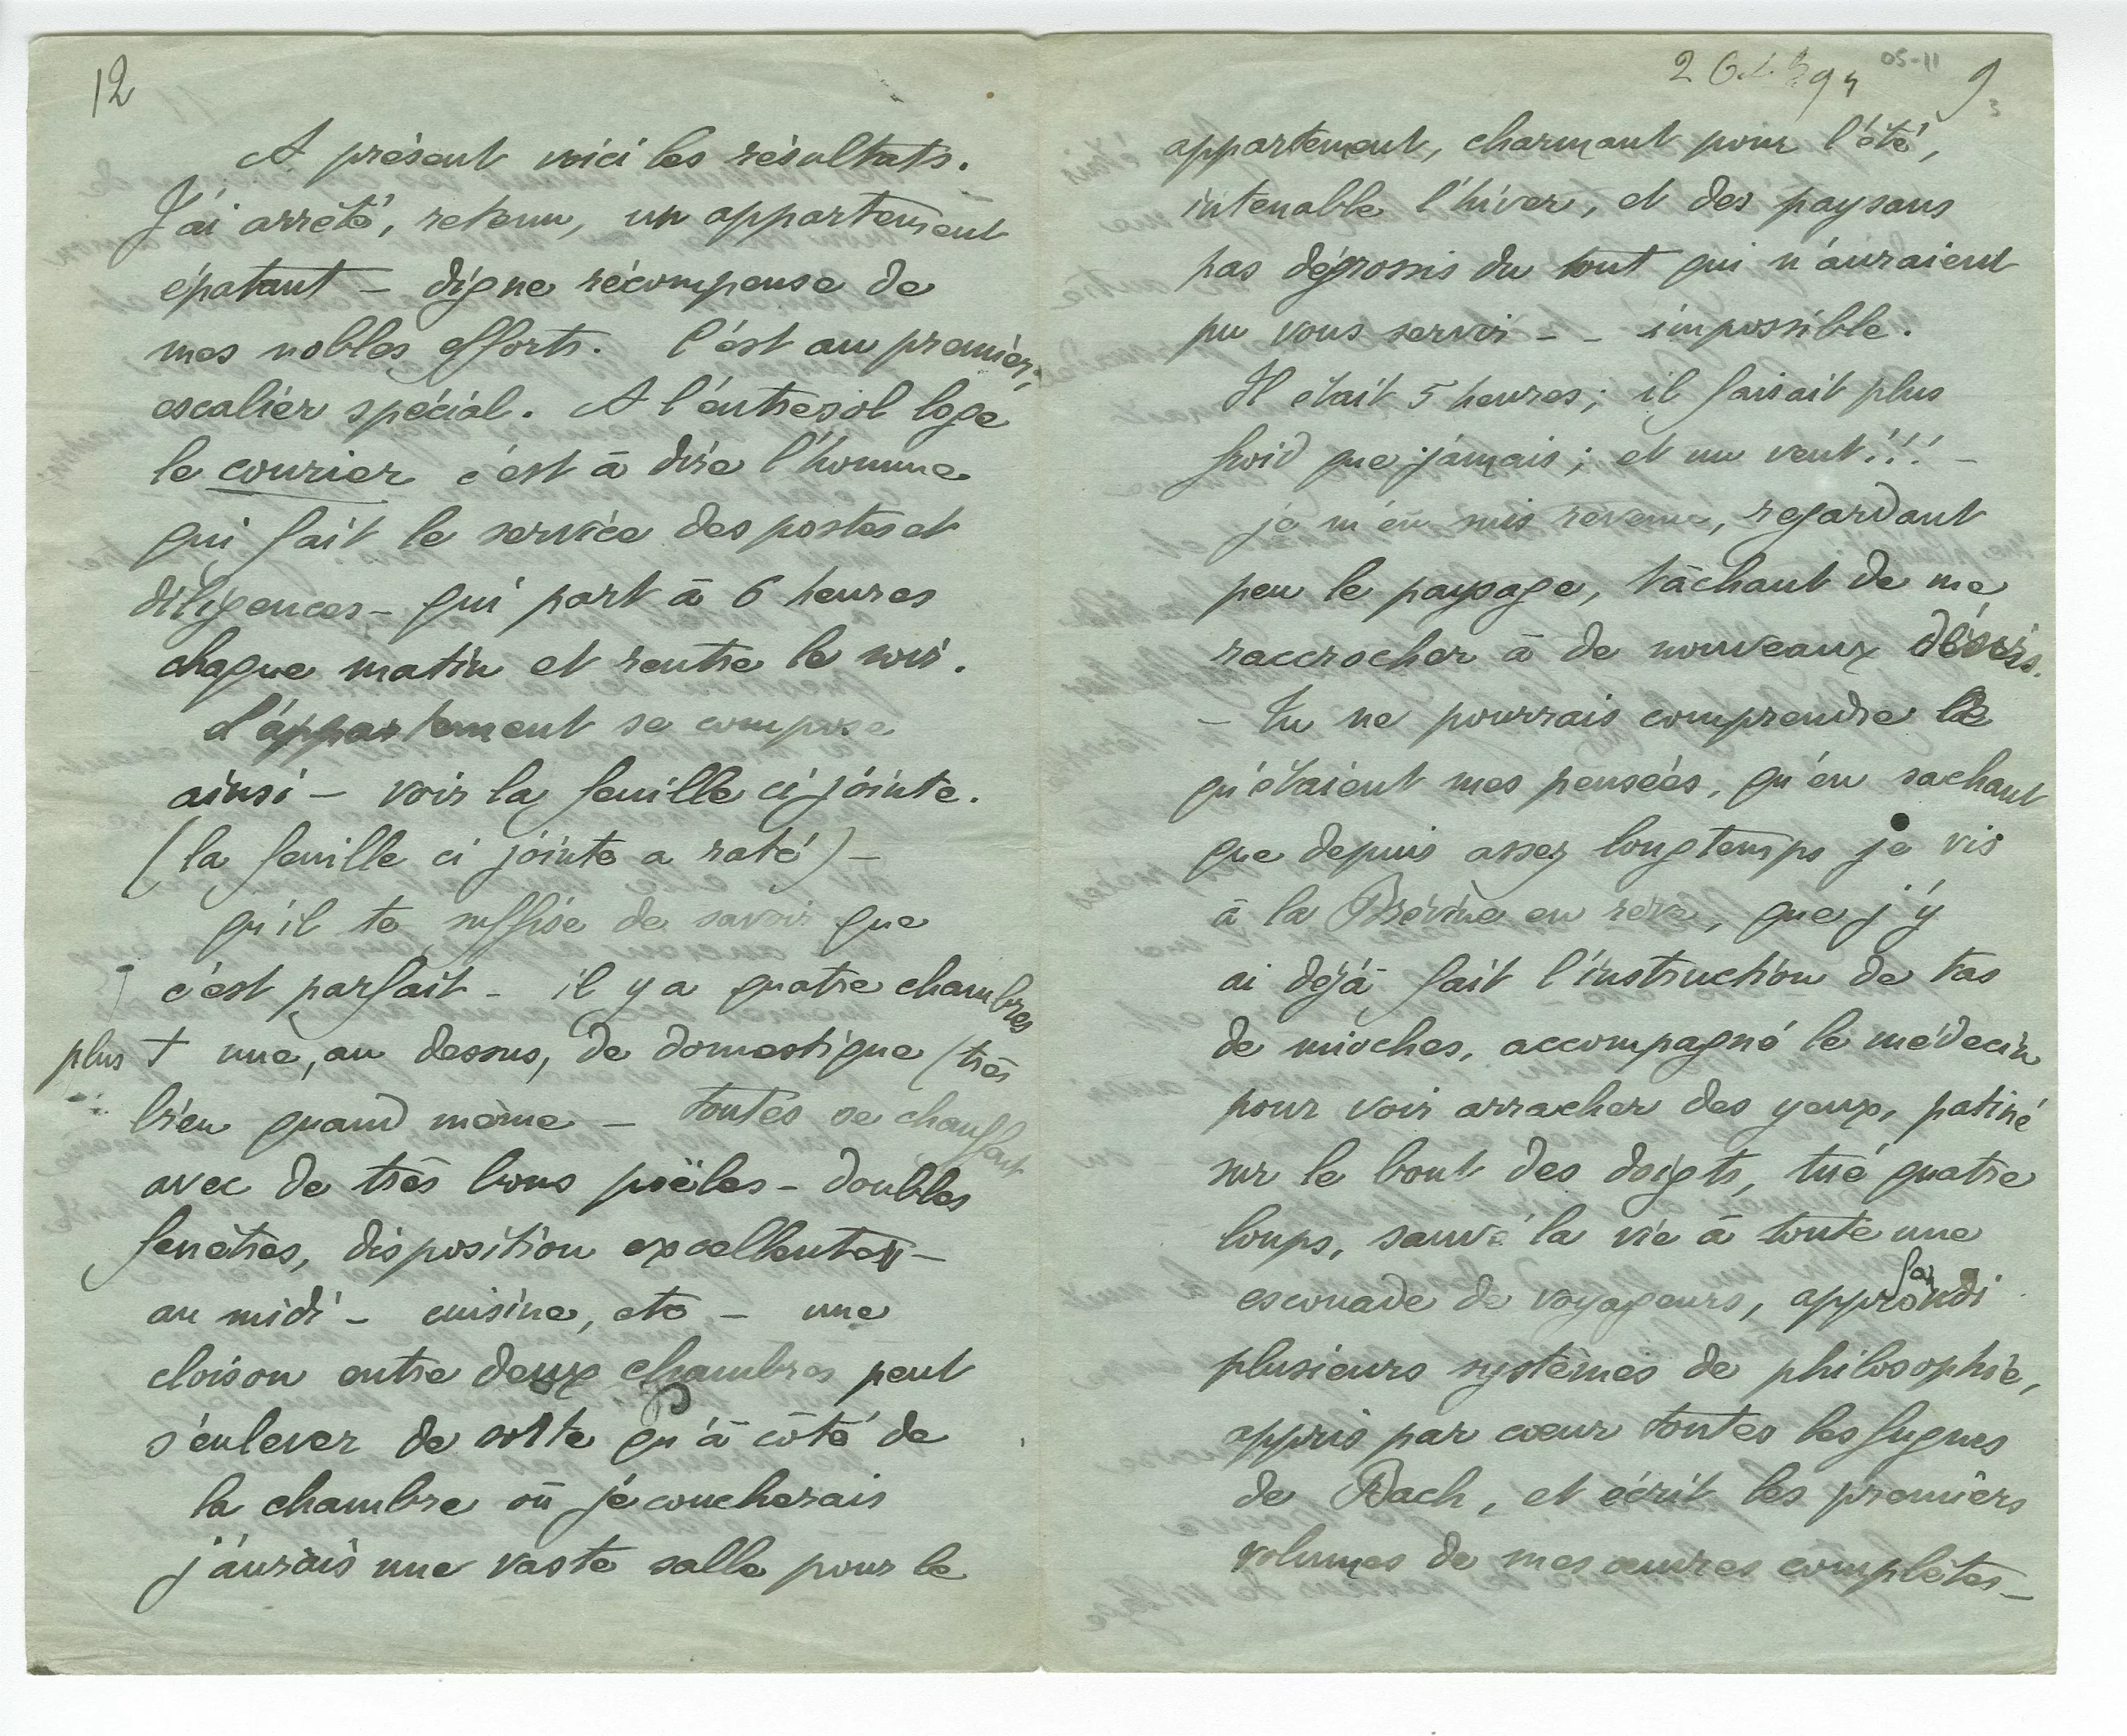 12
A présent voici les résultats.
J'ai arrêté, retenu, un appartement
épatant – digne récompense de
mes nobles efforts. C'est au premier,
escalier spécial. A l'entresol loge
le courier c'est à dire l'homme
qui fait le service des postes et
diligences – qui part à 6 heures
chaque matin et rentre le soir.
L'appartement se compose
ainsi – voir la feuille ci jointe.
(la feuille ci jointe a raté) –
qu'il te suffise de savoir que
c'est parfait – il y a quatre chambres
plus + une, au dessus, de domestique (très
bien quand même – toutes se chauffant
avec de très bons poëles – doubles
fenêtres, disposition excellente –
au midi – cuisine, etc – une
cloison entre deux chambres peut
s'enlever de sorte qu'à côté de
la chambre où je coucherais
j'aurais une vaste salle pour le
2 Oct 94 05-11 9
appartement, charmant pour l'été,
intenable l'hiver, et des paysans
pas dégrossis du tout qui n'auraient
pu vous servir – – impossible.
Il était 5 heures; il faisait plus
froid que jamais; et un vent!!! –
je m'en suis revenu, regardant
peu le paysage, tâchant de me
raccrocher à de nouveaux désirs.
– Tu ne pourrais comprendre ce
qu'étaient mes pensées, qu'en sachant
que depuis assez longtemps je vis
à la Brévine en rêve, que j'y
ai déjà fait l'instruction de tas
de mioches, accompagné le médecin
pour voir arracher des yeux, patiné
sur le bout des doigts, tué quatre
loups, sauvé la vie à toute une
escouade de voyageurs, approfondi
plusieurs systèmes de philosophie,
appris par cœur toutes les fugues
de Bach, et écrit les premiers
volumes de mes œuvres complètes –